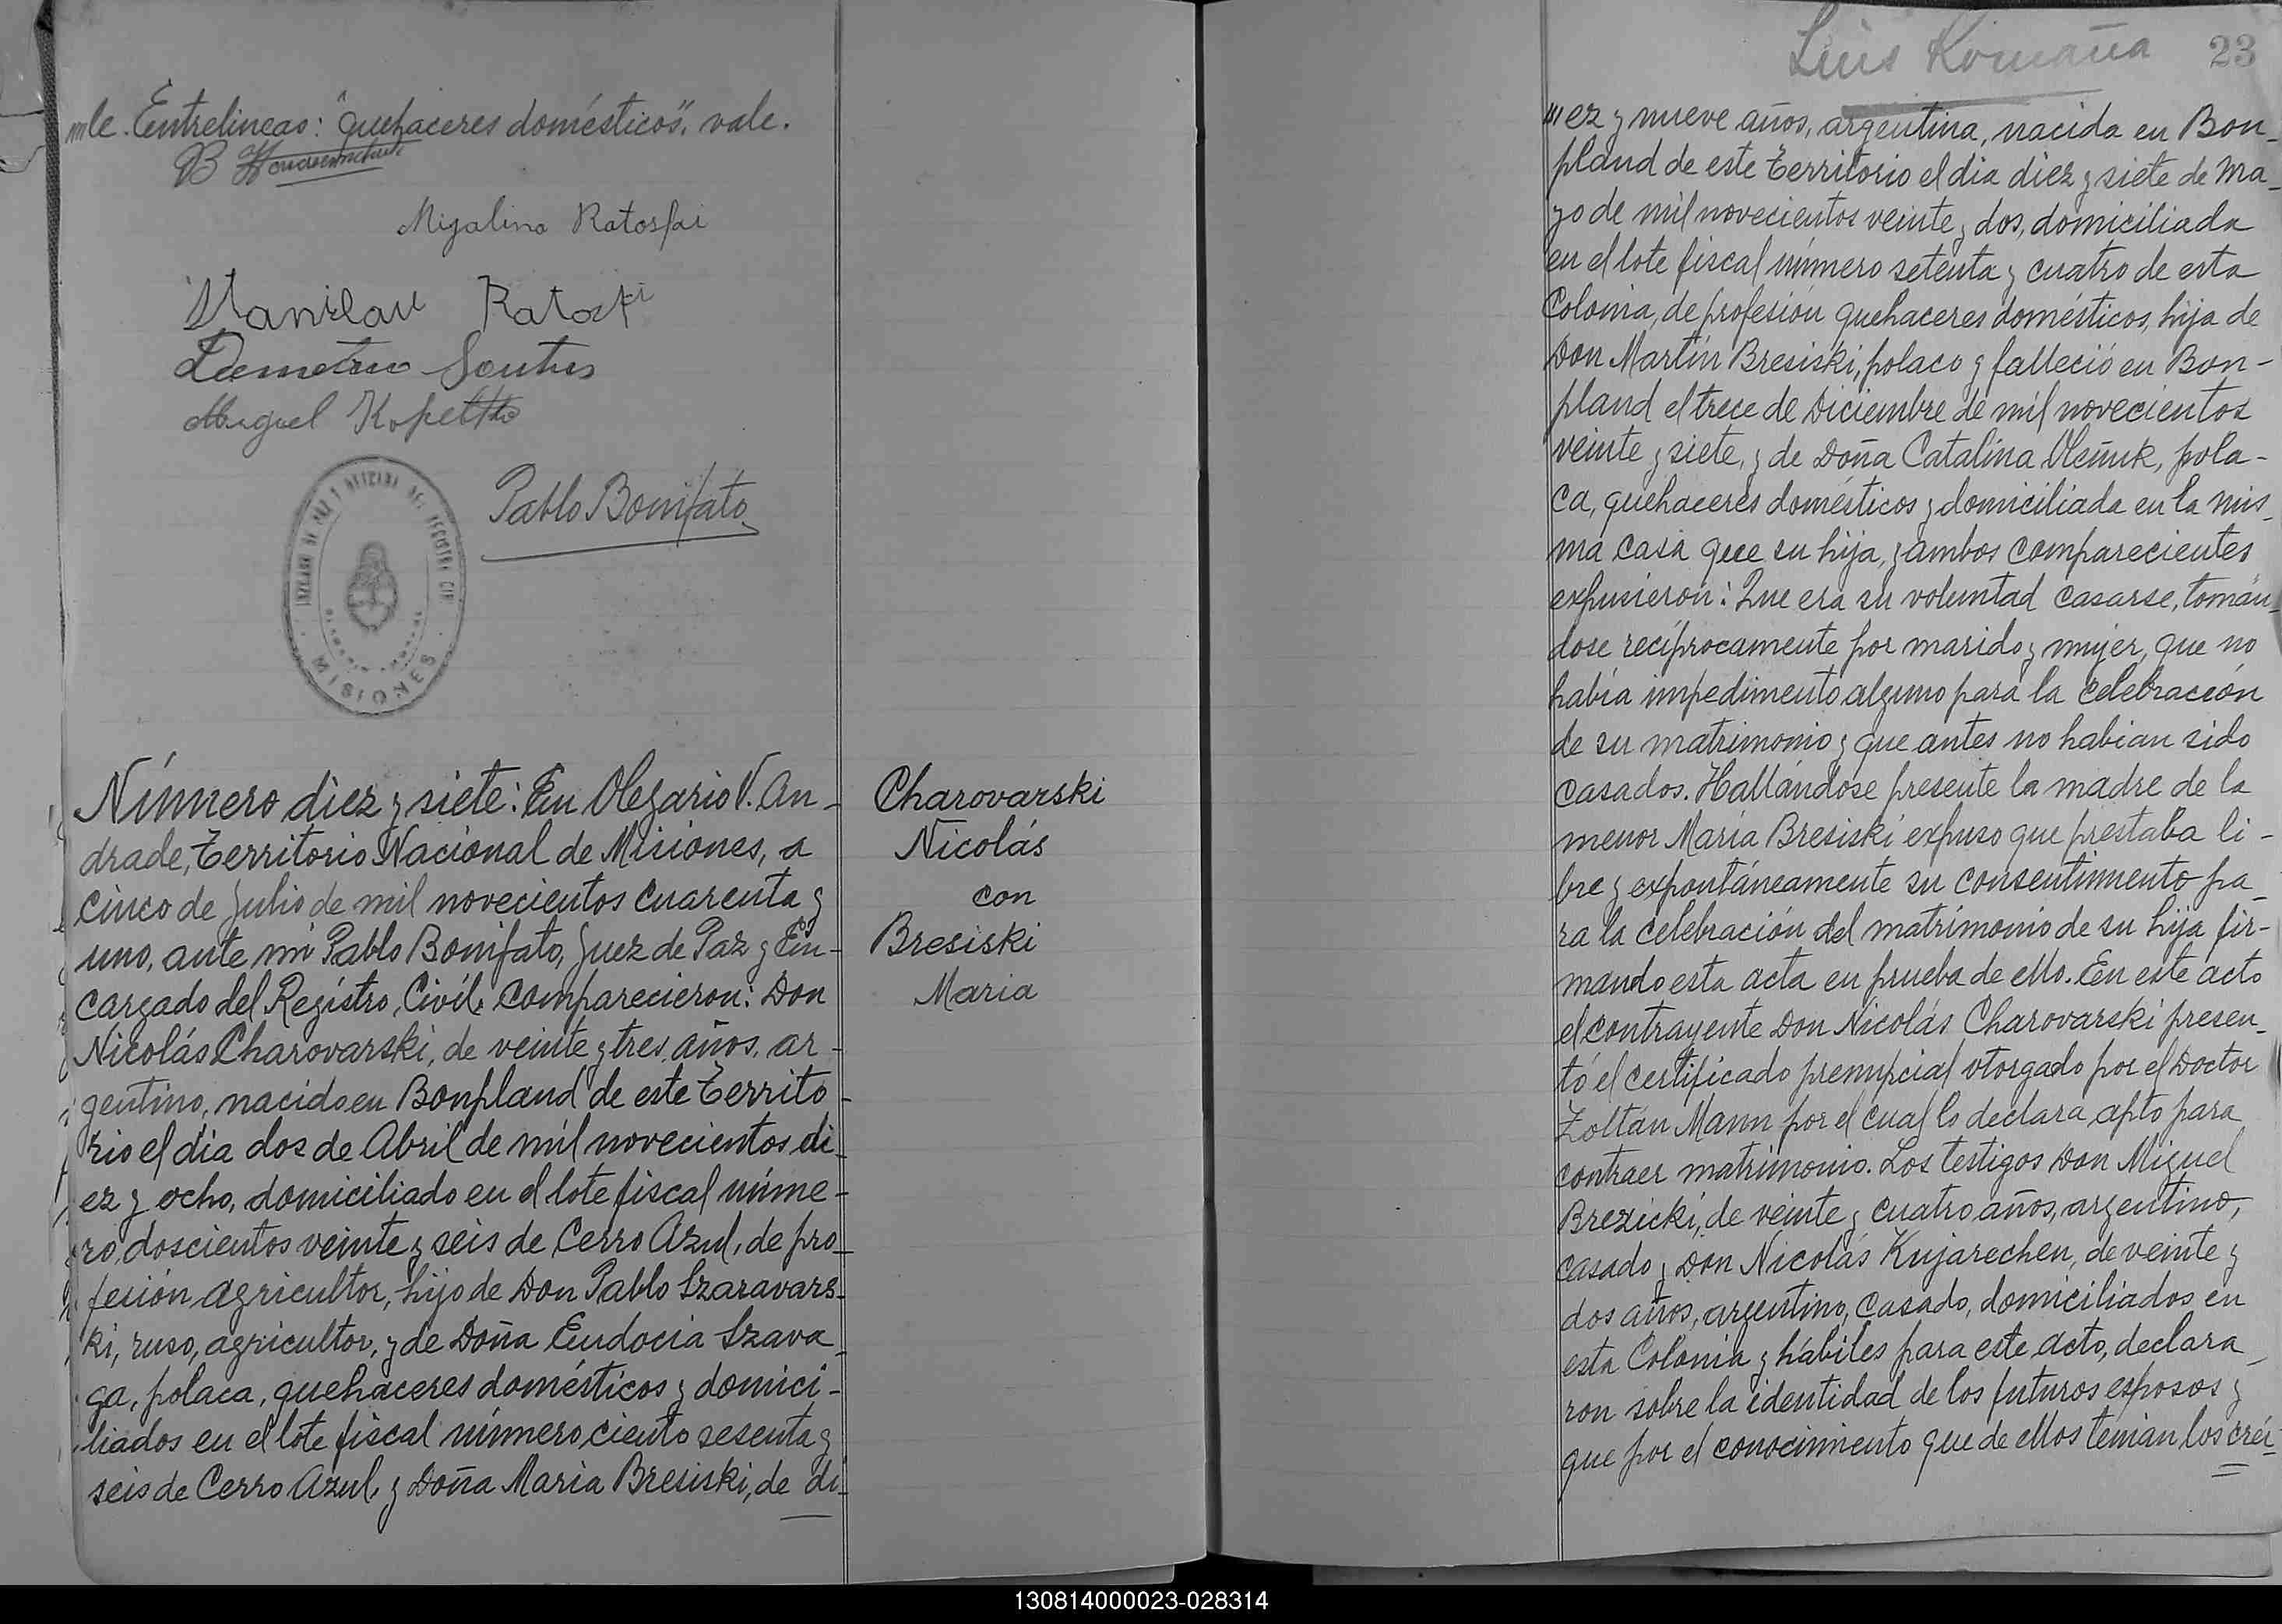 mle. Entrelineas: "quehaceres domésticos", vale.
Stanislau Ratoski
Miguel
Pablo Bonifato
MISIONES
Número diez y siete: En Olegario V. An-
drade, Territorio Nacional de Misiones, a
cinco de Julio de mil novecientos cuarenta y
uno, ante mi Pablo Bonifato, Juez de Paz y En-
cargado del Registro Civil, comparecieron: Don
Nicolás Charovarski, de veinte y tres años, ar-
gentino, nacido en Bonpland de este Territo-
rio el dia dos de Abril de mil novecientos di-
ez y ocho, domiciliado en el lote fiscal núme-
ro doscientos veinte y seis de Cerro Azul, de pro-
fesión agricultor, hijo de Don Pablo Szaravars-
ki, ruso, agricultor, y de Doña Eudocia Szava-
ga, polaca, quehaceres domésticos y domici-
liados en el lote fiscal número ciento sesenta y
seis de Cerro Azul, y Doña Maria Bresiski, de di-
Charovarski
Nicolás
con
Bresiski
Maria
Luis Romaña 23
ez y nueve años, argentina, nacida en Bon-
pland de este Territorio el dia diez y siete de Ma-
yo de mil novecientos veinte y dos, domiciliada
en el lote fiscal número setenta y cuatro de esta
Colonia, de profesión quehaceres domésticos, hija de
Don Martin Bresiski, polaco y falleció en Bon-
pland el trece de Diciembre de mil novecientos
veinte y siete, y de Doña Catalina Oleñuk, pola-
ca, quehaceres domésticos y domiciliada en la mis-
ma casa que su hija, y ambos comparecientes
expusieron: Que era su voluntad casarse, tomán-
dose recíprocamente por marido y mujer, que no
había impedimento alguno para la celebración
de su matrimonio y que antes no habian sido
casados. Hallándose presente la madre de la
menor Maria Bresiski expuso que prestaba li-
bre y expontáneamente su consentimiento pa-
ra la celebración del matrimonio de su hija fir-
mando esta acta en prueba de ello. En este acto
el contrayente Don Nicolás Charovarski presen-
tó el certificado prenupcial otorgado por el Doctor
Zoltán Mann por el cual lo declara apto para
contraer matrimonio. Los testigos Don Miguel
Brezicki, de veinte y cuatro años, argentino,
casado y Don Nicolás Kujarechen, de veinte y
dos años, argentino, casado, domiciliados en
esta Colonia y hábiles para este acto, declara-
ron sobre la identidad de los futuros esposos y
que por el conocimiento que de ellos tenian los crei-
130814000023-028314